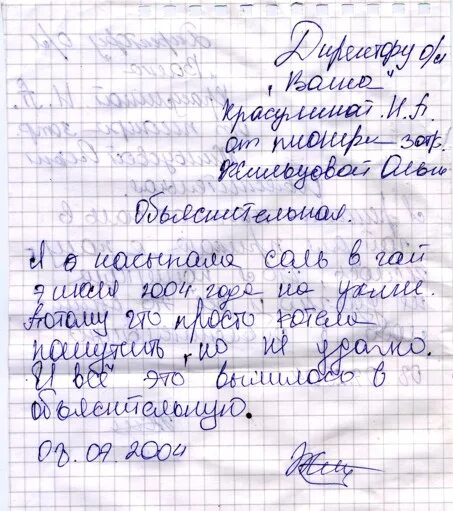 Директору о/л
"Волна"
Красулиной Н.А.
от пионера 3 отр.
Жильцовой Ольги
Объяснительная.
Я насыпала соль в чай
7 июля 2004 года на ужине.
Потому что просто хотела
пошутить, но не удачно.
И всё это вылилось в
объяснительную.
08.07.2004